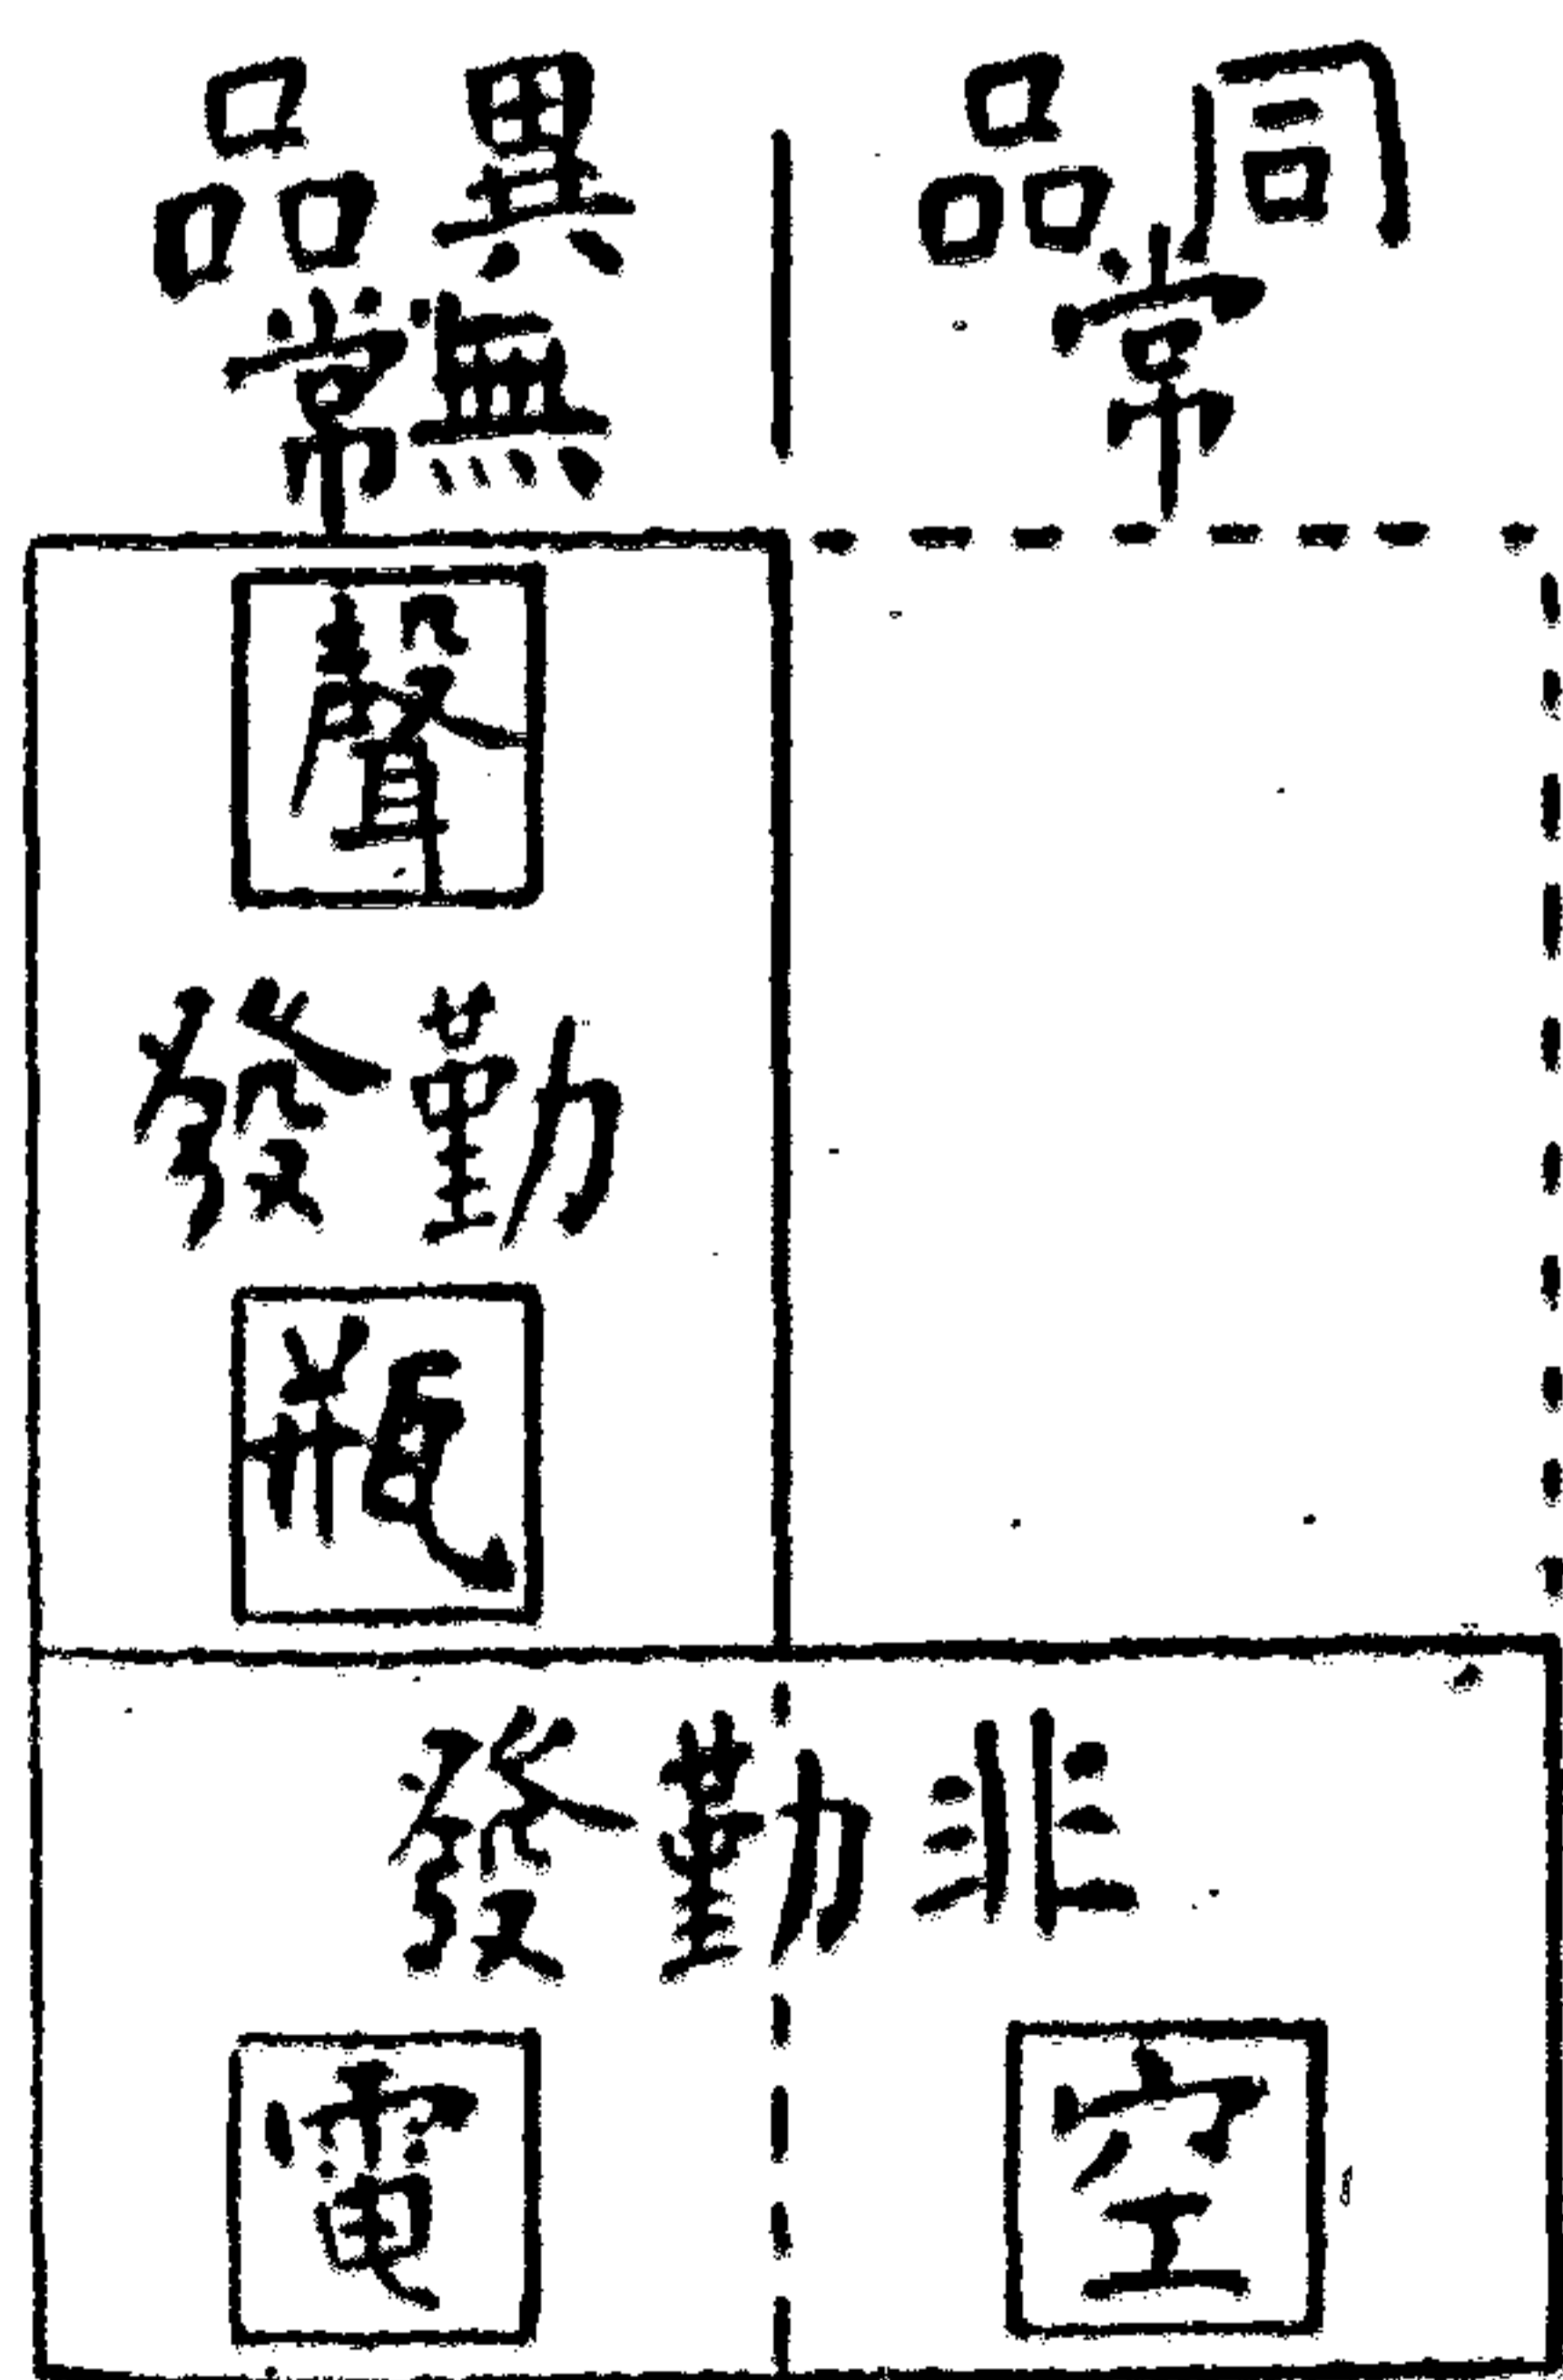 同品常
異品無常
聲
勤發
瓶
非勤發
空
電